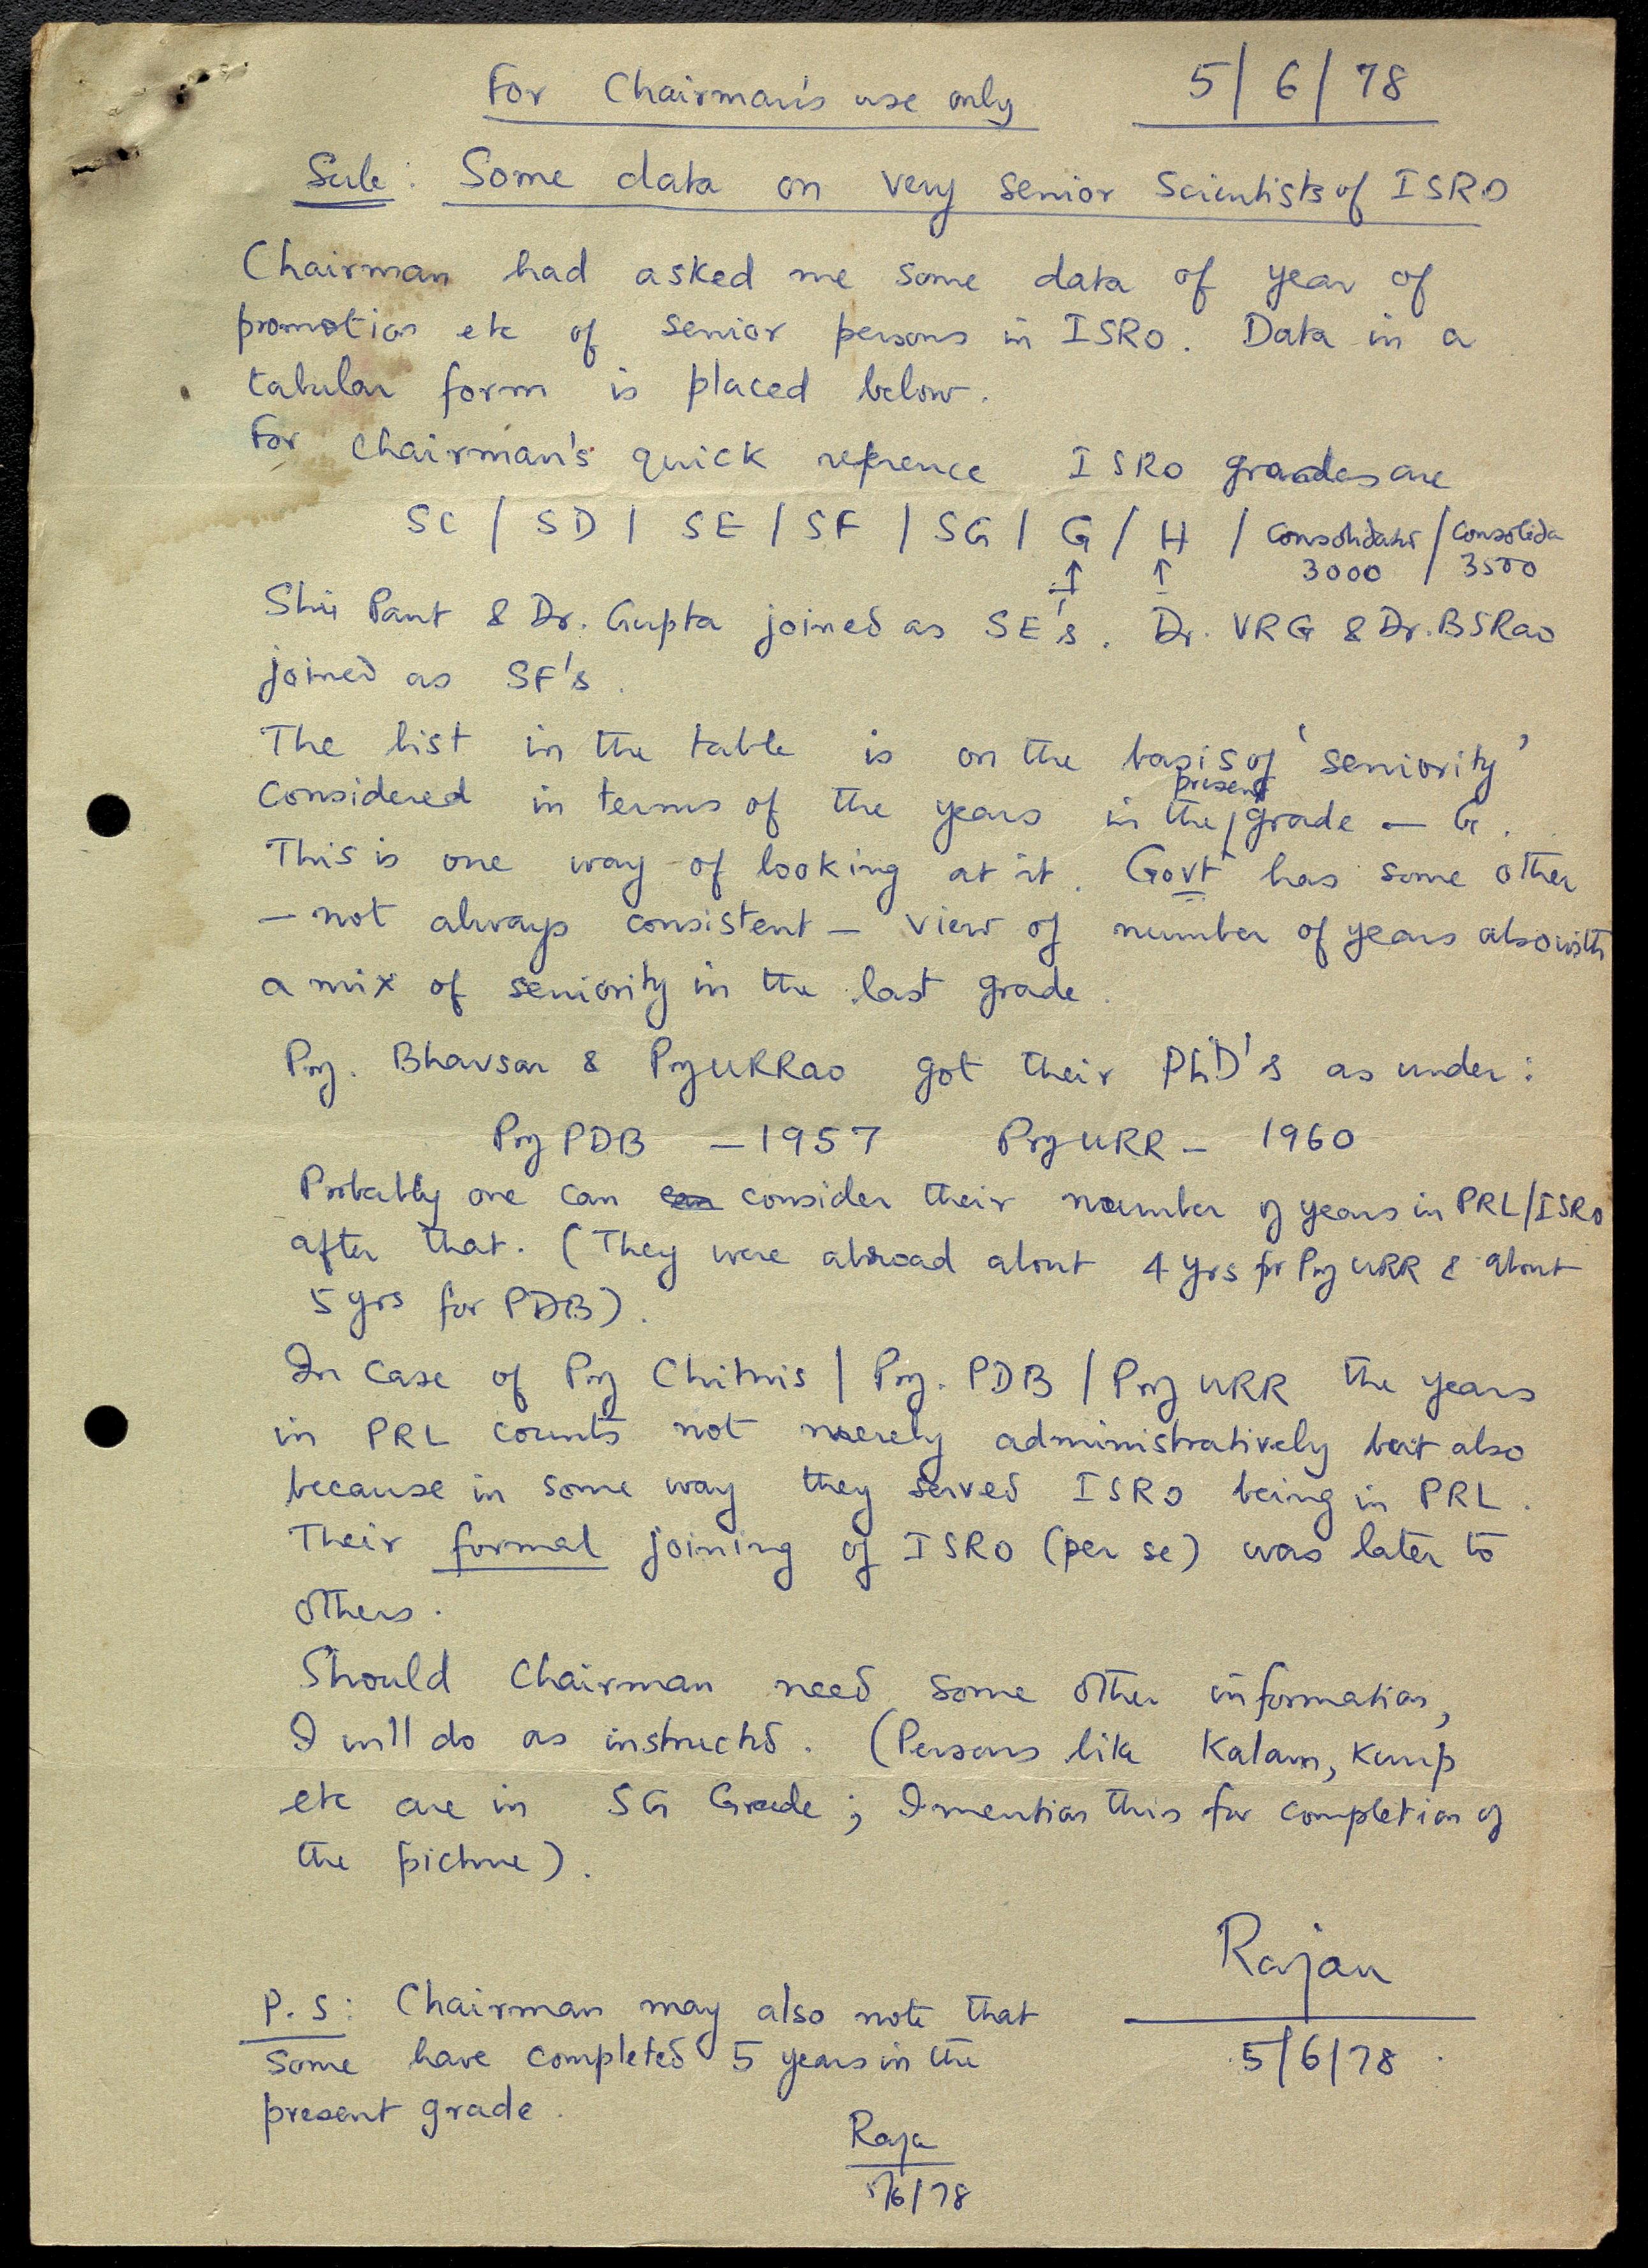 For Chairman's use only 5/6/78
Sub: Some data on very senior Scientists of ISRO
Chairman had asked me some data of year of
promotion etc of senior persons in ISRO. Data in a
tabular form is placed below.
For Chairman's quick reference ISRO grades are
SC / SD / SE / SF / SG / G / H / Consolidated / Consolida
↑ ↑ 3000 / 3500
Shri Pant & Dr. Gupta joined as SE's. Dr. VRG & Dr. BSRao
joined as SF's.
The list in the table is on the basis of 'seniority'
present
considered in terms of the years in the / grade — G.
This is one way of looking at it. Govt has some other
— not always consistent — view of number of years also with
a mix of seniority in the last grade.
Prof. Bhavsar & Prof URRao got their PhD's as under:
Prof PDB — 1957 Prof URR — 1960
Probably one can consider their number of years in PRL/ISRO
after that. (They were abroad about 4 yrs for Prof URR & about
5 yrs for PDB).
In case of Prof Chitnis / Prof. PDB / Prof URR the years
in PRL counts not merely administratively but also
because in some way they served ISRO being in PRL.
Their formal joining of ISRO (per se) was later to
others.
Should Chairman need some other information,
I will do as instructed. (Persons like Kalam, Kurup
etc are in SG Grade; I mention this for completion of
the picture).
Rajan
5/6/78
P.S: Chairman may also note that
some have completed 5 years in the
present grade.
Raja
5/6/78